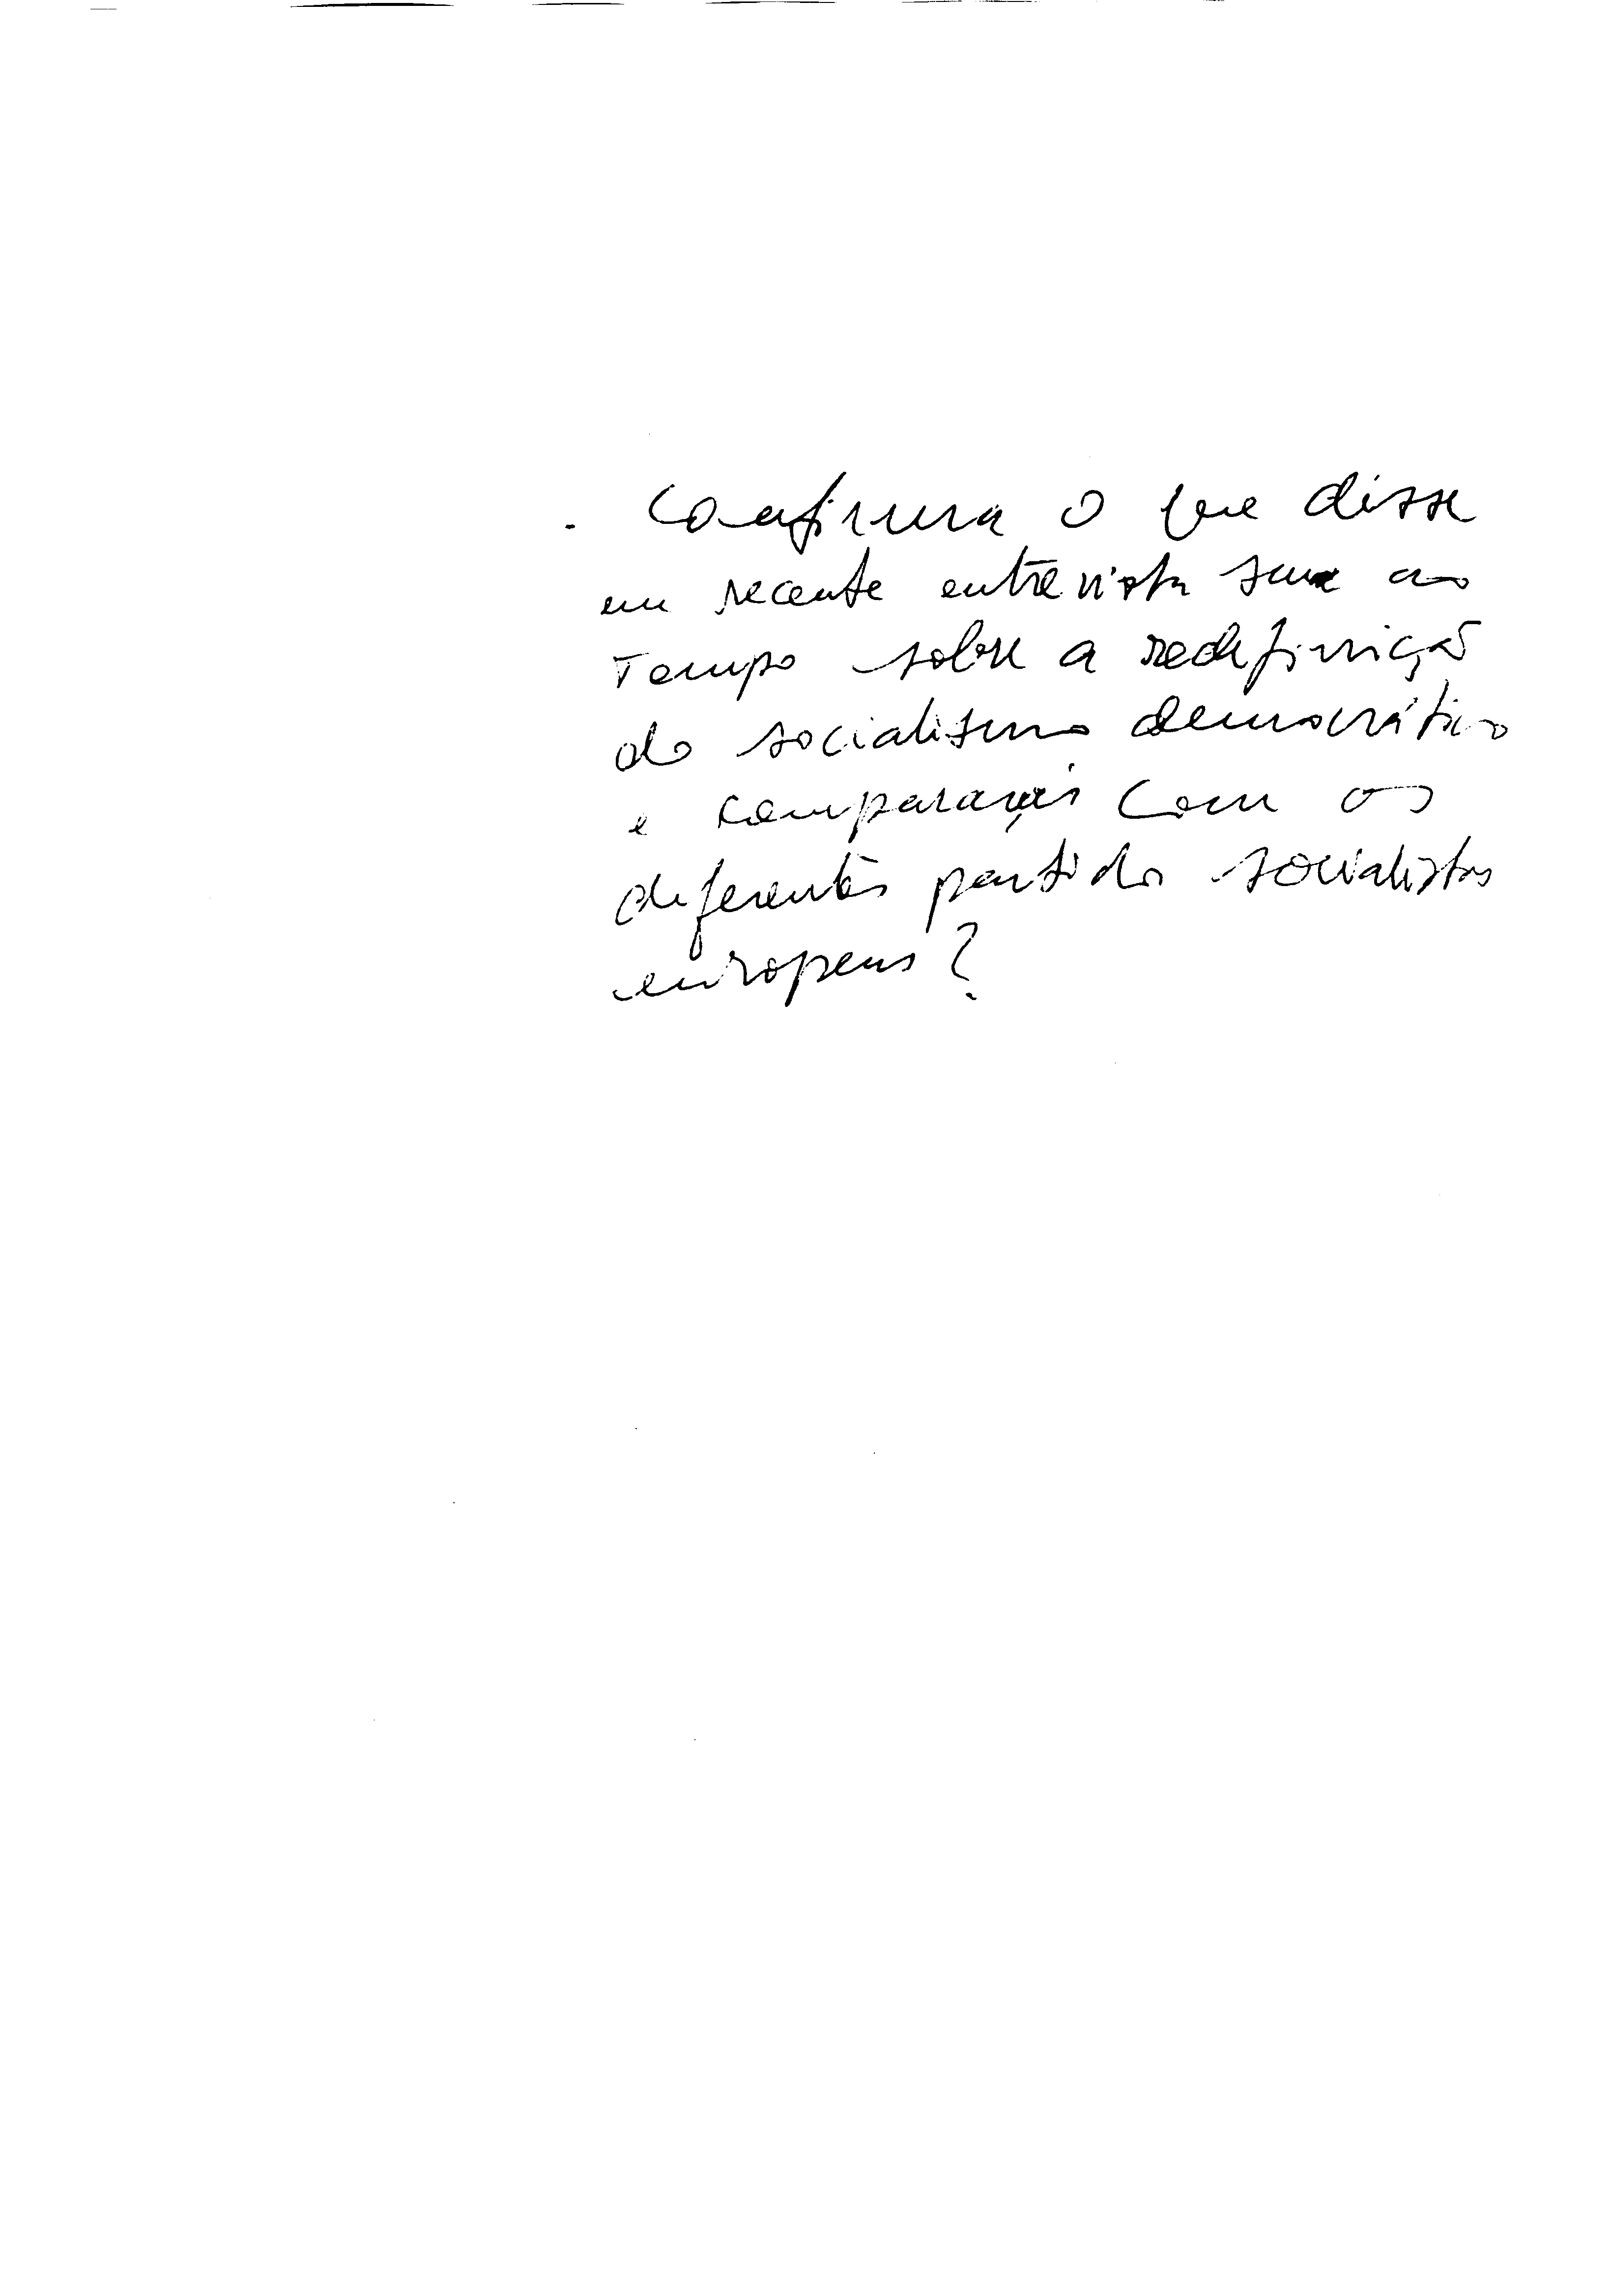 - Confirma o que disse
em recente entrevista sua ao
Tempo sobre a redefinição
do socialismo democrático
e comparação com os
diferentes partidos socialistas
europeus?